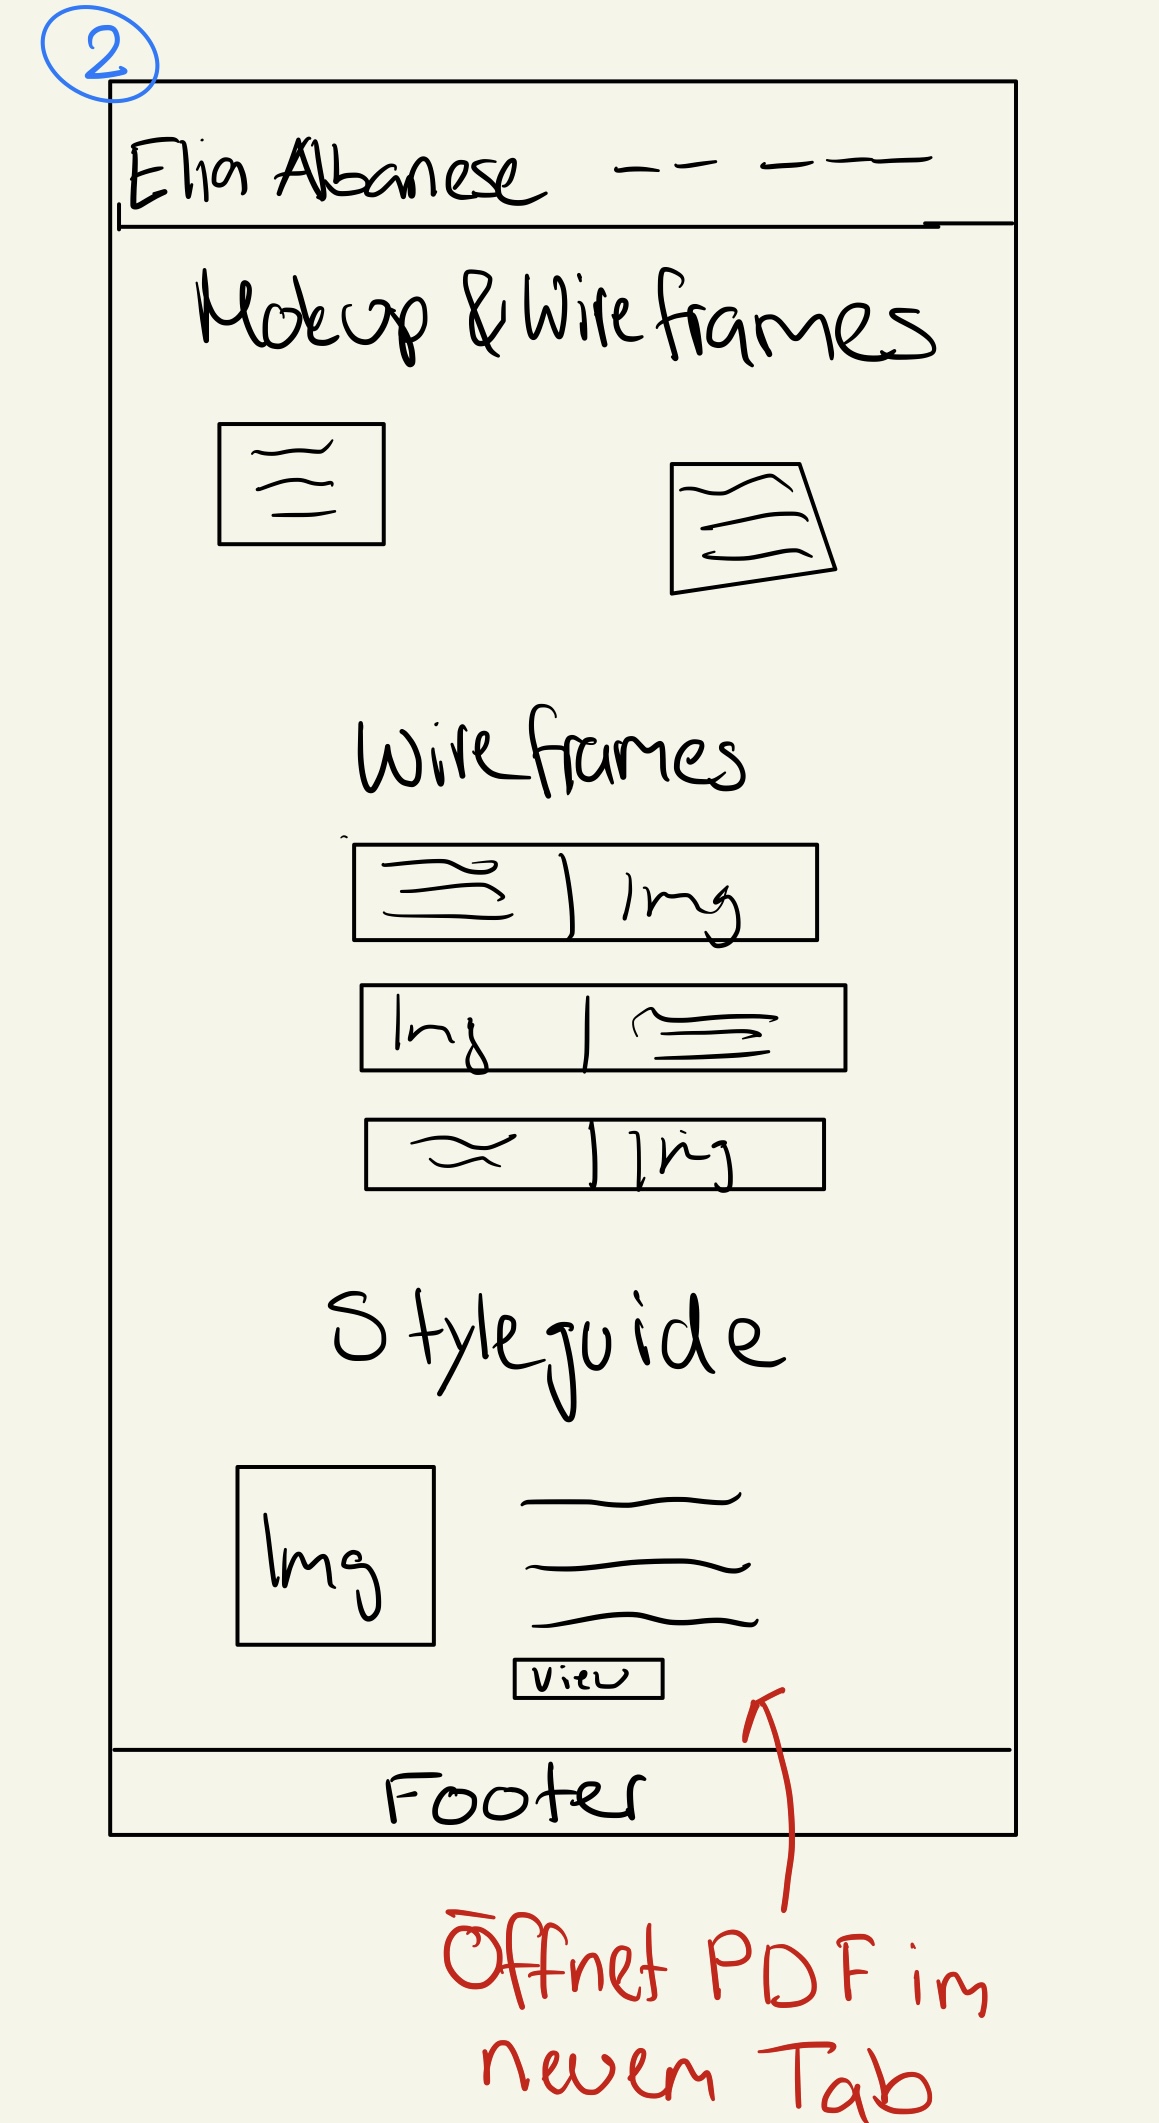 2
Elia Albanese
Mokup & Wireframes
Wireframes
Img
Img
Img
Styleguide
Img
View
Footer
Öffnet PDF im
neuem Tab